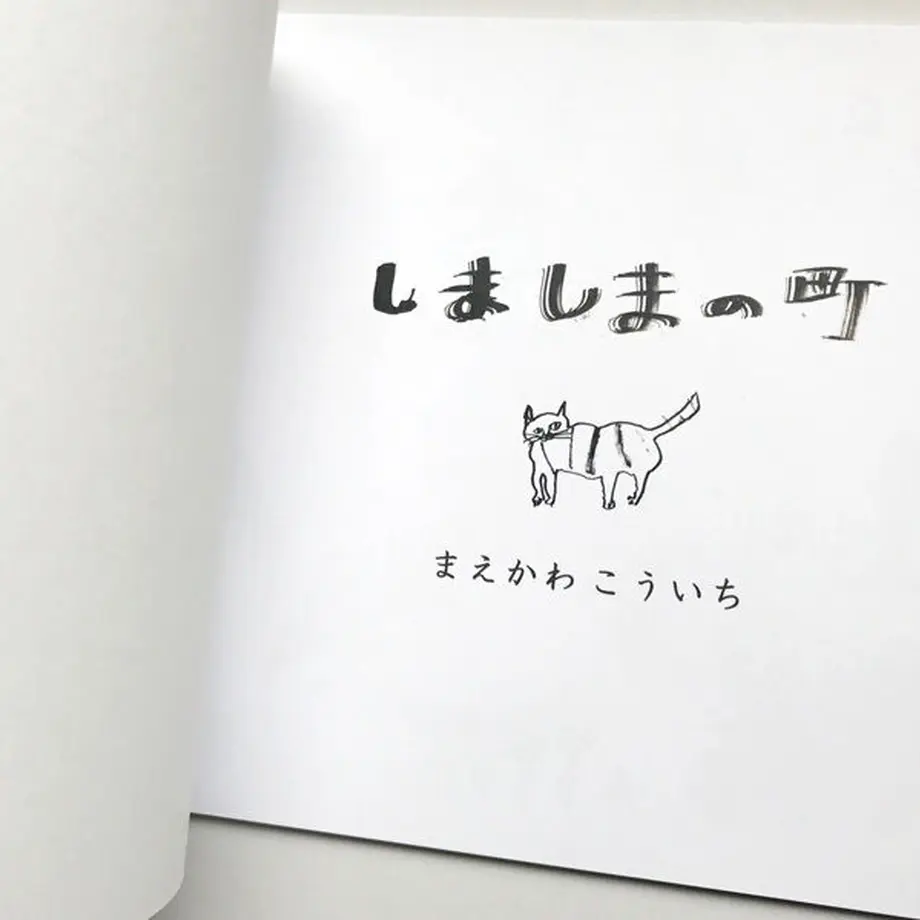 しましまの町
まえかわ こういち